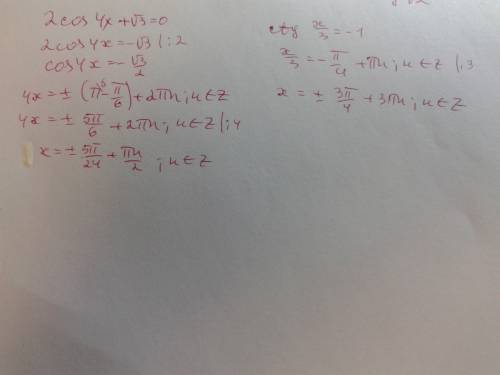 2cos4x+√3=0
2cos4x=-√3 |:2
cos4x=-√3/2
4x=±(π⁶-π/6)+2πn; n∈Z
4x=±5π/6+2πn; n∈Z |:4
x=±5π/24+πn/2; n∈Z
ctg x/3=-1
x/3=-π/4+πn; n∈Z |·3
x=±3π/4+3πn; n∈Z